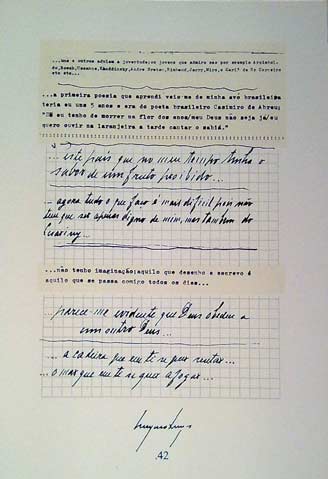 ...uns e outros adulam a juventude;os jovens que admiro são por exemplo
Bosch, Cezanne, Kandinsky, Andre Breton, Rimbaud, Jarry, Miro, e
etc etc...
...a primeira poesia que aprendi veio-me de minha avó brasileira
teria eu uns 5 anos e era do poeta brasileiro Casimiro de Abreu;
"SE eu tenho de morrer na flor dos anos/meu Deus não seja já/eu
quero ouvir na laranjeira a tarde cantar o sabiá."
...este país que no meu tempo tinha o
sabor de um fruto proibido...
...agora tudo o que faço é mais difícil pois não
tem que ser apenas digno de mim, mas também do
Cesariny...
...não tenho imaginação;aquilo que desenho e escrevo é
aquilo que se passa comigo todos os dias...
parece-me evidente que Deus obedece a
um outro Deus...
...a cadeira que em te se quer sentar...
...o mar que em te se quer afogar...
.42